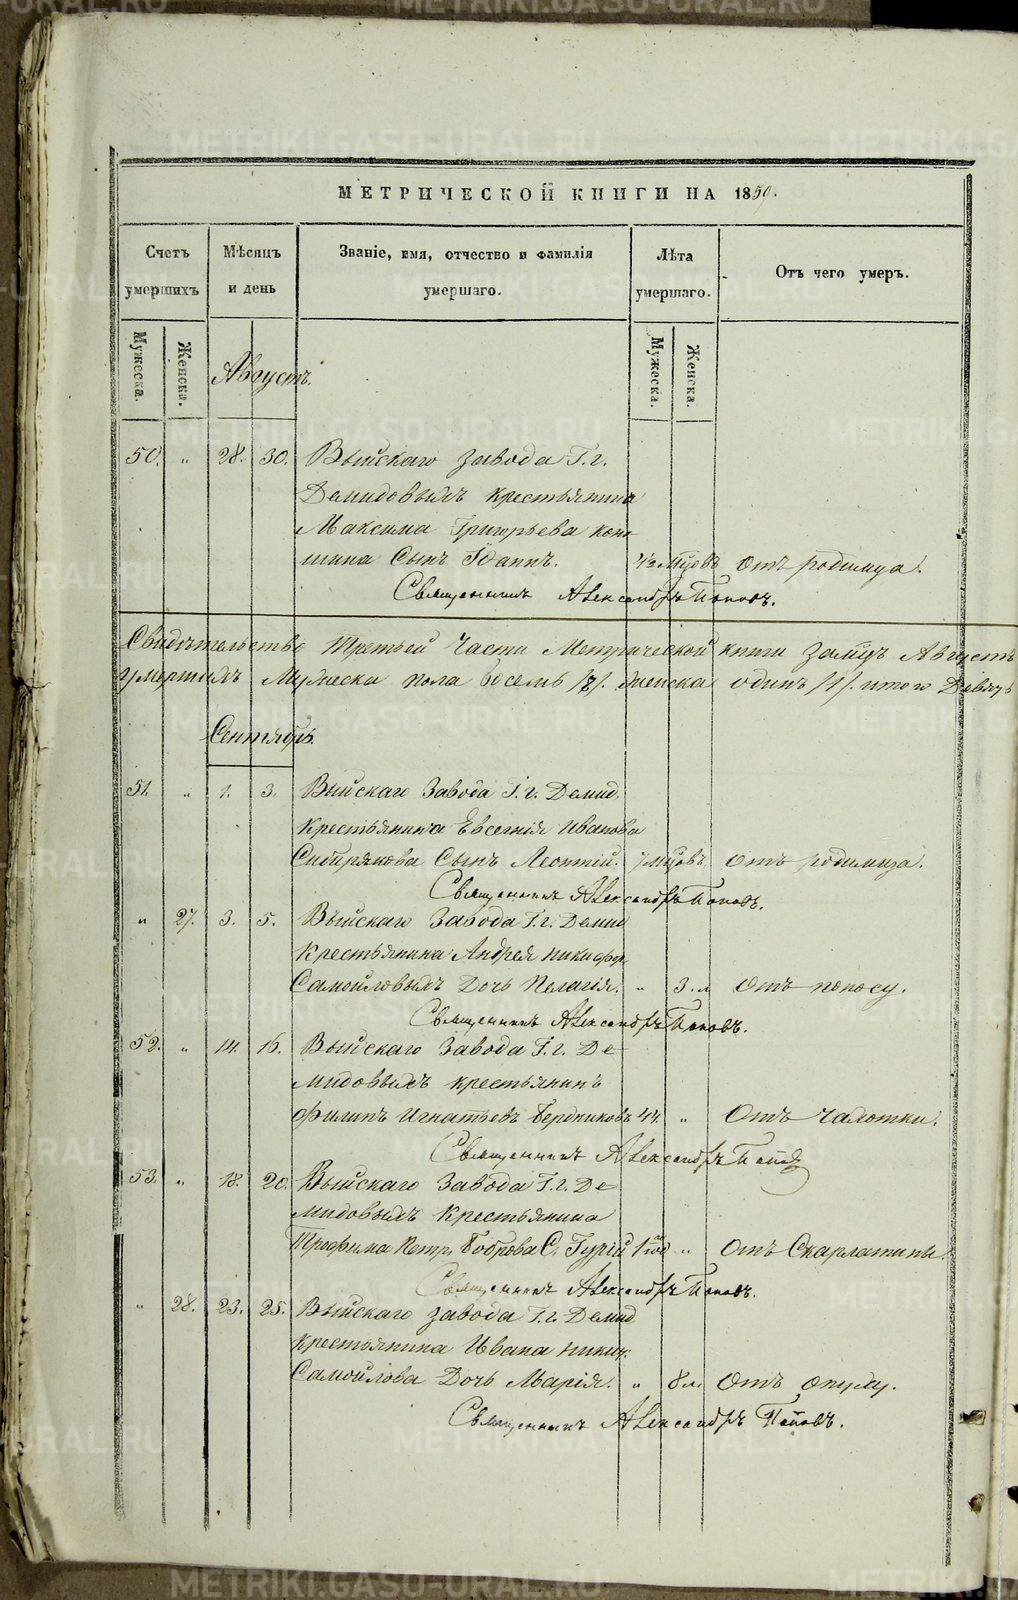 МЕТРИЧЕСКОЙ КНИГИ НА 1859.
Счетъ умершихъ
Мѣсяцъ и день
Званіе, имя, отчество и фамилія умершаго.
Лѣта умершаго.
Отъ чего умеръ.
Мужеска. Женска. Мужеска. Женска.
Августъ.
50. " 28. 30. Выйскаго завода Г. г.
Демидовыхъ крестьянина
Максима Григорьева
сынъ Іоаннъ. Отъ родимца.
Священникъ Александръ Поповъ.
Свидѣтельство третьей части Метрической книги за Августъ
умершихъ Мужеска пола восемь /8/. женска одинъ /1/. итого Девять
Сентябрь.
51. " 1. 3. Выйскаго Завода Г. г. Демид.
крестьянина Евсегнія Иванова
Сибирякова Сынъ Леонтій. 7 мѣсцовъ Отъ родимца.
Священникъ Александръ Поповъ.
" 27. 3. 5. Выйскаго Завода Г. г. Демид
Крестьянина Андрея Никифор.
Самойловыхъ Дочь Пелагія. " 3. л Отъ поносу.
Священникъ Александръ Поповъ.
52. " 14. 16. Выйскаго Завода Г. г. Де-
мидовыхъ крестьянинъ
Филипъ Игнатьевъ Бердниковъ 44. " Отъ Чахотки.
Священникъ Александръ Поповъ
53. " 18. 20. Выйскаго Завода Г. г. Де-
мидовыхъ Крестьянина
Трофима Петр. Боброва С. Гурій 1 год " Отъ Скарлатины.
Священникъ Александръ Поповъ.
" 28. 23. 25. Выйскаго завода Г. г. Демид
крестьянина Ивана Никит.
Самойлова Дочь Марія. " 8 л Отъ
Священникъ Александръ Поповъ.
METRIKI.GASO-URAL.RU